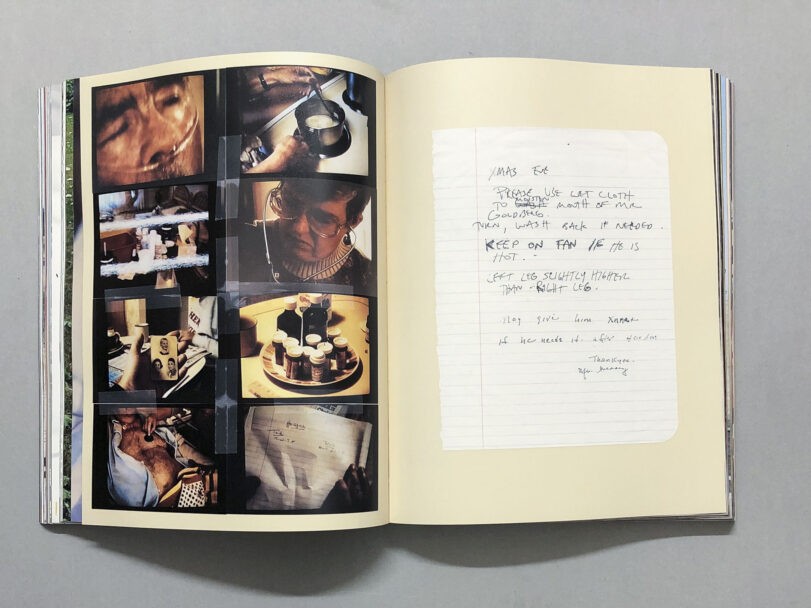 XMAS EVE
PLEASE USE WET CLOTH
TO MOISTEN MOUTH OF MR
GOLDBERG.
TURN, WASH BACK IF NEEDED.
KEEP ON FAN IF HE IS
HOT.
LEFT LEG SLIGHTLY HIGHER
THAN RIGHT LEG.
May give him
if he needs it after
Thank you